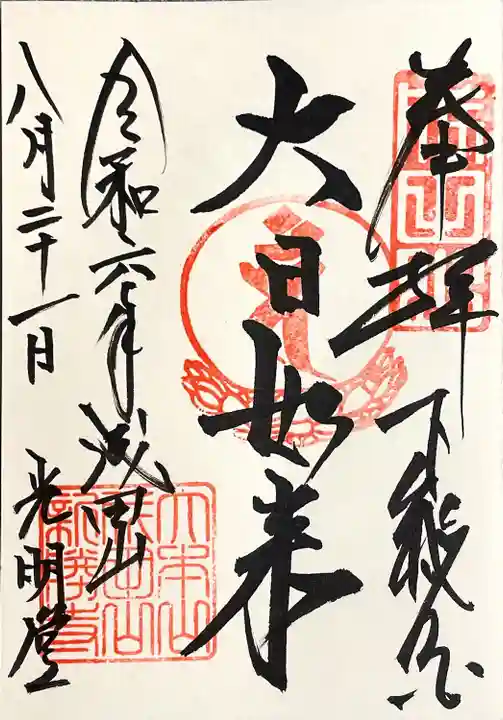 奉拝 下総国
大日如来
令和六年 成田山
八月二十一日 光明堂
大本山成田山新勝寺